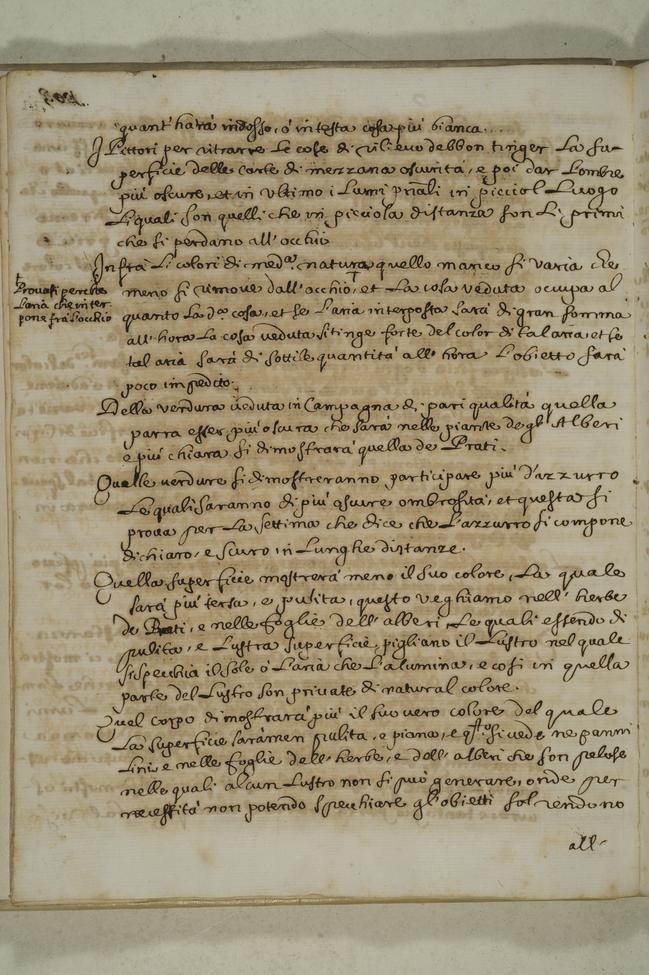 quant' harà indosso, ò in testa cosa più bianca...
I Pittori per ritrarre le cose di rilievo debbon tinger la su-
perficie delle carte di mezzana oscurità, e poi dar l'ombre
più oscure, et in ultimo i lumi pñali in picciol luogo
li quali son quelli che in picciola distanza son li primi
che si perdano all'occhio
Infra li colori di med.ª natura quello manco si varia che
Provasi perche
l'aria che inter
pone frà l'occhio
meno si rimove dall'occhio, et la cosa veduta ocupa al
quanto la d.ª cosa, et se l'aria interposta sarà di gran somma
all'hora la cosa veduta si tinge forte del color di tal aria, et se
tal aria sarà di sottile quantità all'hora l'obietto sarà
poco impedito.
Della verdura veduta in Campagna di pari qualità quella
parra esser più oscura che sarà nelle piante degl'Alberi
e più chiara si dimostrarà quella de Prati.
Quelle verdure si dimostreranno participare più d'azzurro
le quali saranno di più oscure ombrosità, et questa si
prova per la settima che dice che l'azzurro si compone
di chiaro, e scuro in lunghe distanze.
Quella superficie mostrerà meno il suo colore, la quale
sarà più tersa, e pulita, questo veghiamo nell'herbe
de Prati, e nelle foglie dell'alberi, le quali essendo di
pulita, e lustra superficie, pigliano il lustro nel quale
si specchia il sole ò l'aria che l'alumina, e così in quella
parte del lustro son private di natural colore.
Quel corpo dimostrarà più il suo vero colore del quale
la superficie sarà men pulita, e piana, e qsto si vede ne panni
lini, e nelle foglie dell'herbe, e dell'alberi che son pelose
nelle quali alcun lustro non si può generare, onde per
necessità non potendo specchiare gl'obietti sol rendono
all'